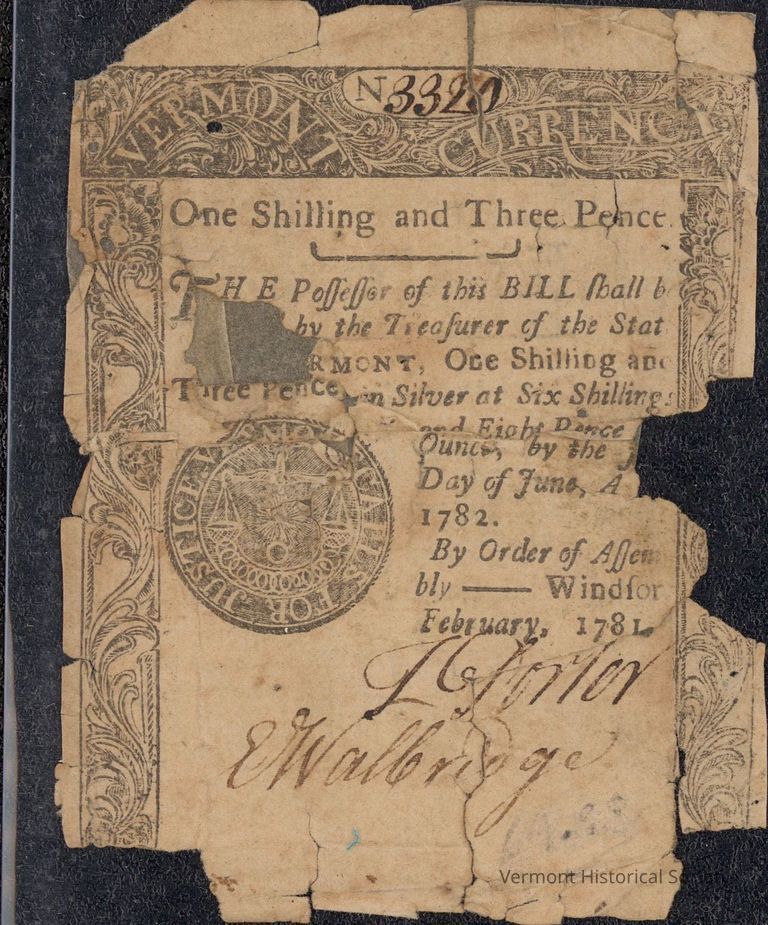 VERMONT CURRENCY
No 3320
One Shilling and Three Pence.
THE Poſſeſſor of this BILL ſhall b
by the Treaſurer of the Stat
RMONT, One Shilling and
Three Pence, in Silver at Six Shillings
and Eight Pence
Ounce, by the
Day of June, A
1782.
By Order of Aſſem
bly —— Windſor
February, 1781.
T Porter
E Walbridge
JUSTICE FOR
Vermont Historical